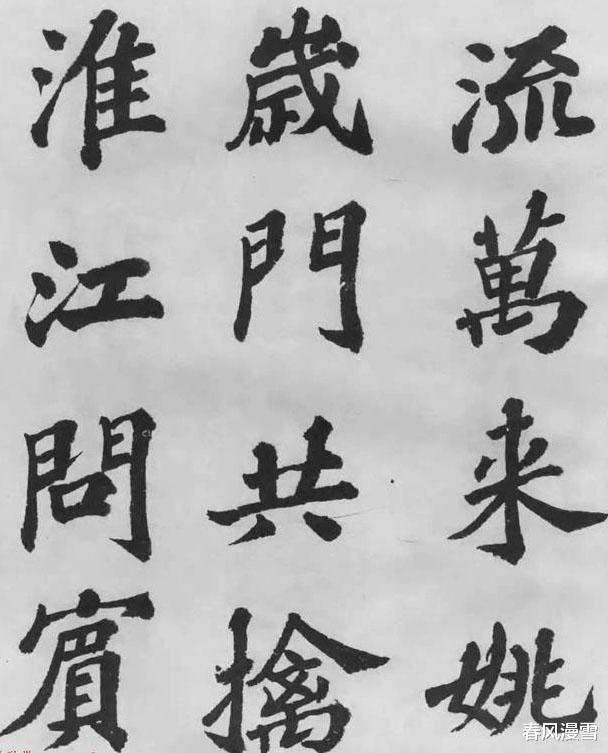 流萬来姚
歲門共擒
淮江問賓
春风漫雪